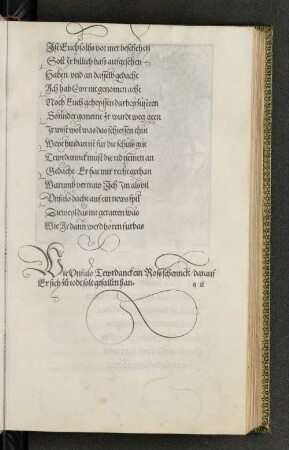 Ist Euch solhs vor mer beschehen
Solt Ir billich bass aufgesehen
Haben vnd an dasselb gedacht
Ich hab Ewr nit genomen acht
Noch Euch geheyssen darbey
Sonnder gemeint Ir wurdt weg geen
Ir wist wol was das schiessen thut
Weyt hindan ist für die schuss gut
Tewrdannck must die red nemen an
Gedacht Er hat mir recht gethan
Warumb vertraw Ich Im als vil
Vnfalo dacht auf ein new spil
Dieweyl das nit geraten was
Wie Ir dann werd horen furbas
Wie Vnfalo Tewrdanck ein Ross schennckt darauf
Er sich zu tode solt gefallen han
q ii